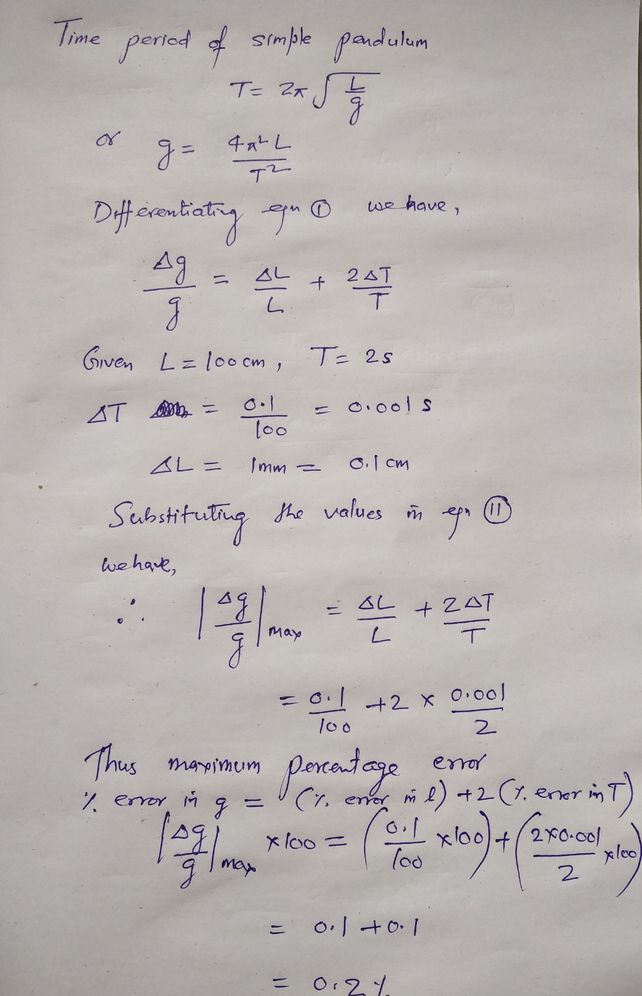 Time period of simple pendulum
T = 2π √(L/g)
or g = 4π² L / T²
Differentiating eqn ① we have,
Δg/g = ΔL/L + 2ΔT/T
Given L = 100 cm, T = 2s
ΔT = 0.1/100 = 0.001 s
ΔL = 1mm = 0.1 cm
Substituting the values in eqn ⑪
we have,
∴ |Δg/g| max = ΔL/L + 2ΔT/T
= 0.1/100 + 2 × 0.001/2
Thus maximum percentage error
% error in g = (% error in l) + 2 (% error in T)
|Δg/g| max × 100 = (0.1/100 × 100) + (2×0.001/2 × 100)
= 0.1 + 0.1
= 0.2 %